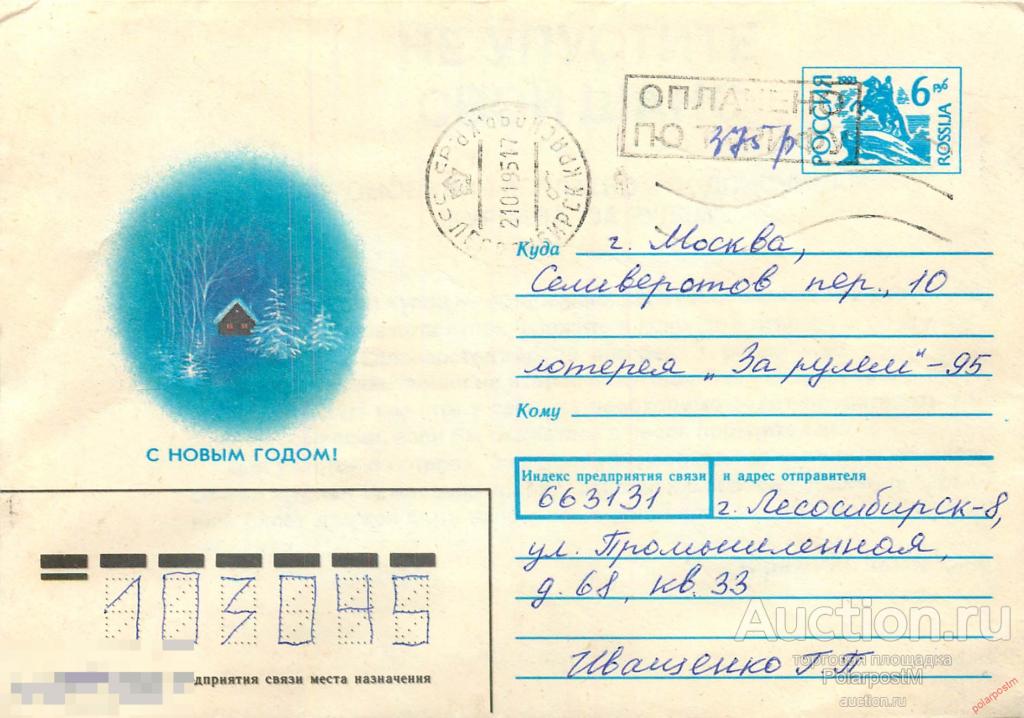 ОПЛАЧЕНО
ПО ТАРИФУ
375 р
РОССИЯ
1993
6
ROSSIJA
СССР
21019517
Куда г. Москва,
Селиверстов пер., 10
лотерея „За рулем"-95
Кому
С НОВЫМ ГОДОМ!
Индекс предприятия связи и адрес отправителя
663131 г. Лесосибирск-8,
ул. Промышленная,
д. 68, кв. 33
Иващенко Г.П.
103045
едприятия связи места назначения
Auction.ru
торговая площадка
PolarpostM
auction.ru
polarpostm